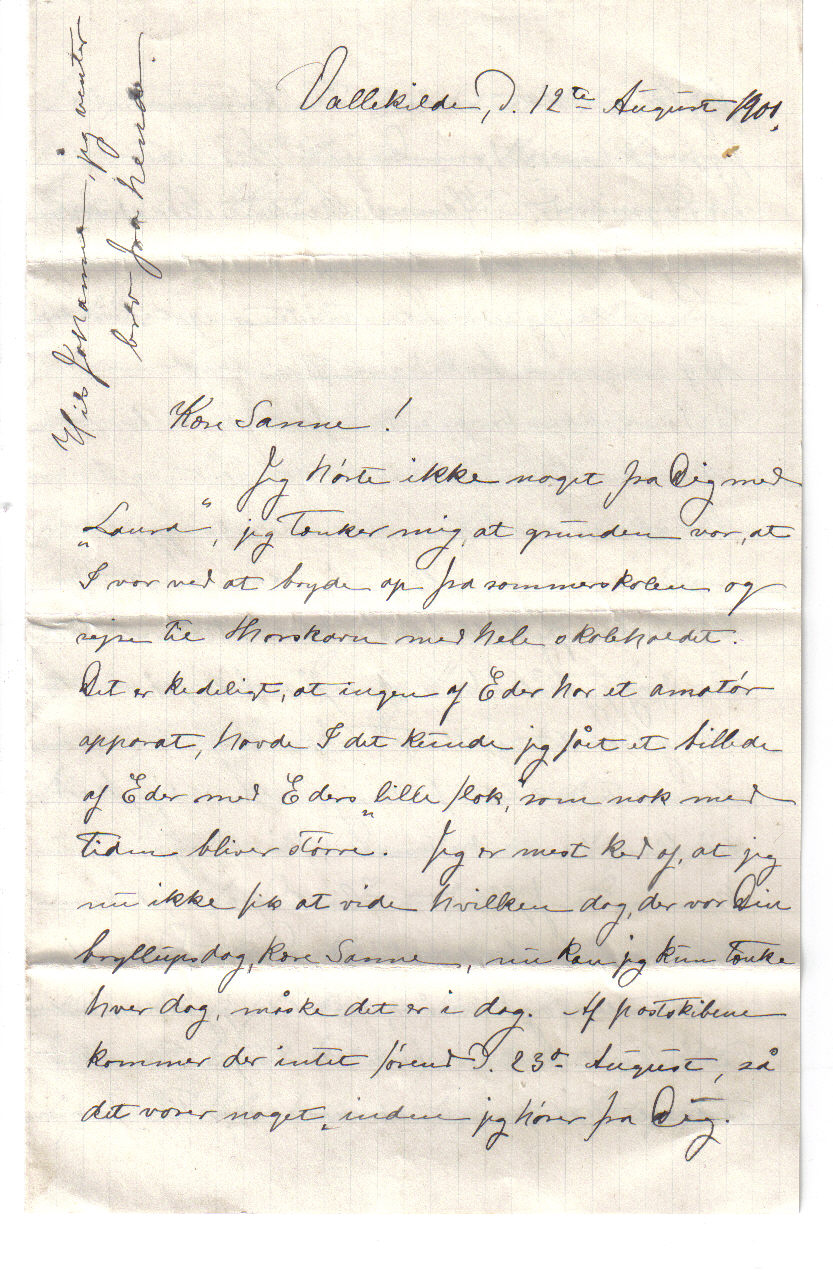 Vallekilde, d. 12te August 1901.
Hils Johanna, jeg venter
brev fra hende.
Kære Sanne!
Jeg hørte ikke noget fra Dig med
„Laura“, jeg tænker mig, at grunden var, at
I var ved at bryde op fra sommerskolen og
rejse til Thorshavn med hele skoleholdet.
Det er kedeligt, at ingen af Eder har et amatør
apparat, havde I det kunde jeg fået et billede
af Eder med Eders „lille flok,“ som nok med
tiden bliver større. Jeg er mest ked af, at jeg
nu ikke fik at vide hvilken dag, der var Din
bryllupsdag, kære Sanne, nu kan jeg kun tænke
hver dag, måske det er i dag. Af postskibene
kommer der intet førend d. 23de August, så
det varer noget, inden jeg hører fra Dig.